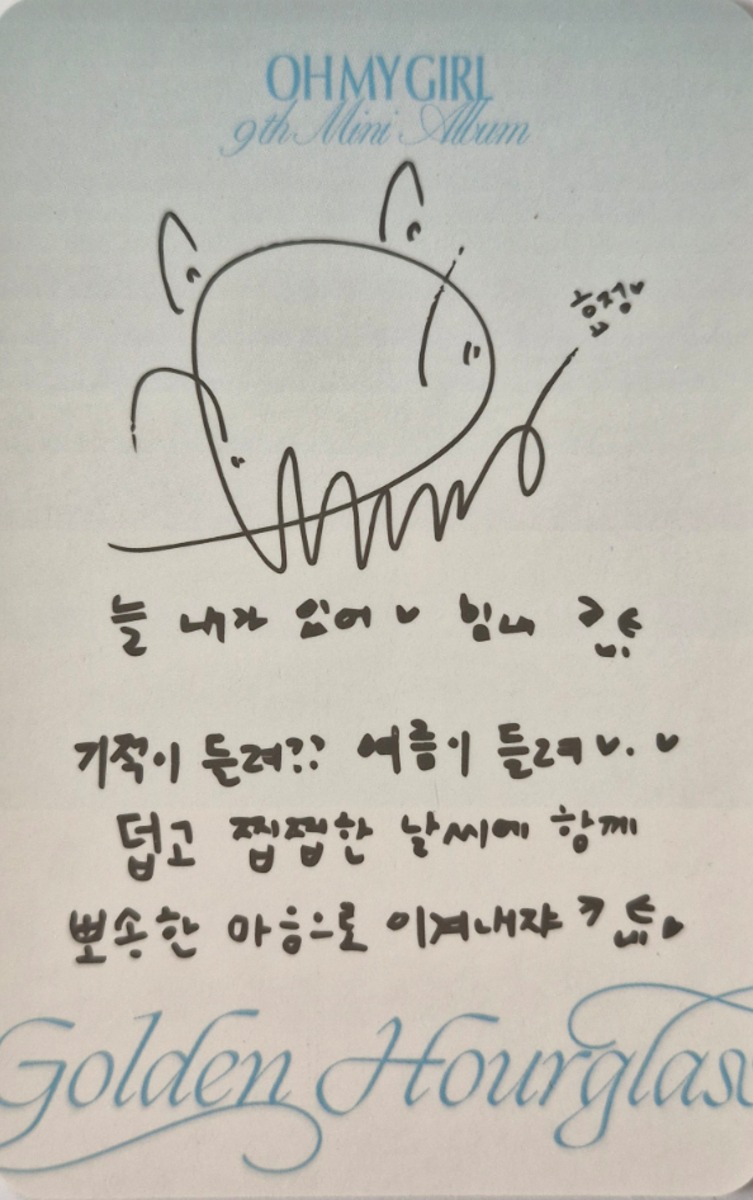 OH MY GIRL
9th Mini Album
효정♥
늘 내가 있어♥ 힘내
기적이 들려?? 여름이 들려♥.♥
덥고 찝찝한 날씨에 함께
뽀송한 마음으로 이겨내쟈
Golden Hourglass